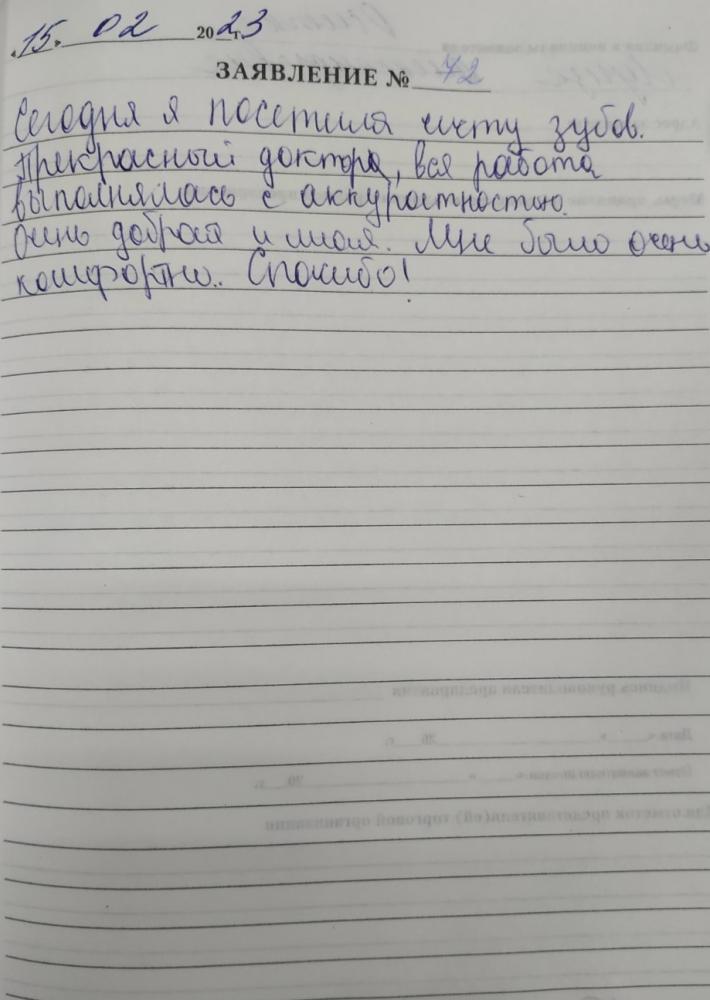 «15» 02 2023 г.
ЗАЯВЛЕНИЕ № 72
Сегодня я посетила чистку зубов.
Прекрасный доктор, вся работа
выполнялась с аккуратностью.
Очень добрая и милая. Мне было очень
комфортно. Спасибо!